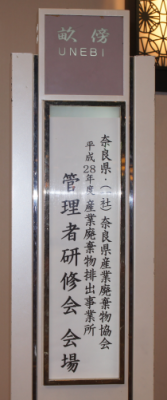 畝傍
UNEBI
奈良県・(一社)奈良県産業廃棄物協会
平成28年度産業廃棄物排出事業所
管理者研修会 会場